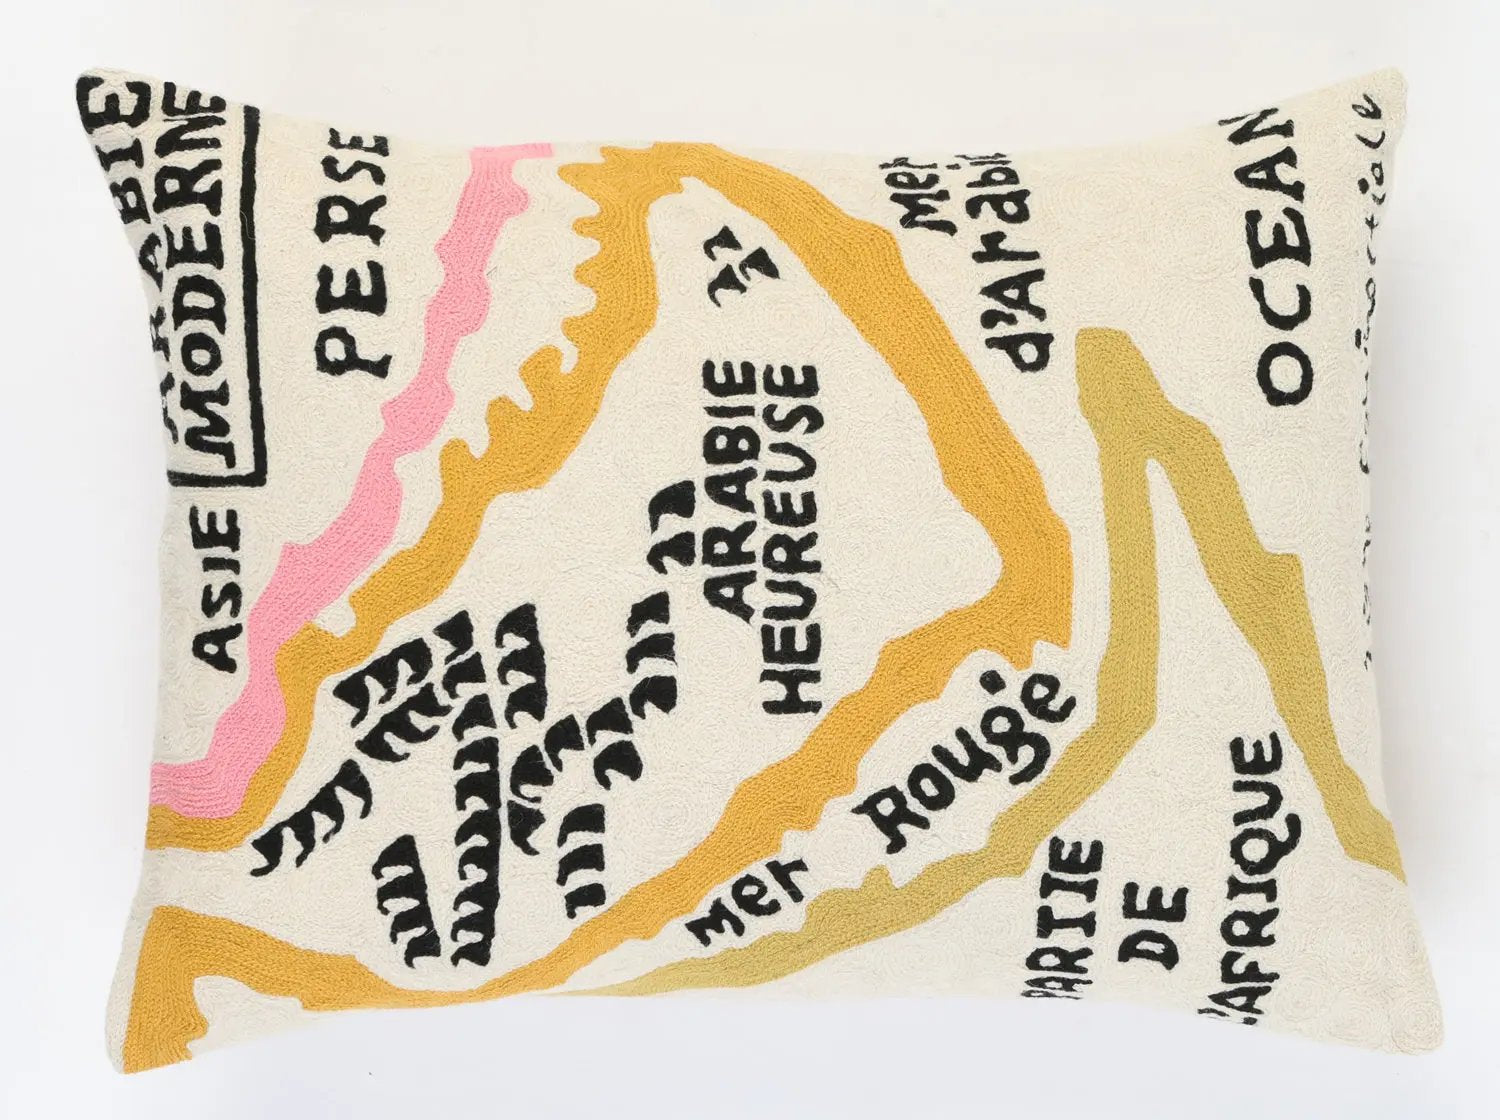 ARABIE
MODERNE
ASIE
PERSE
ARABIE
HEUREUSE
Mer
d'Arabie
OCEAN
Mer
Rouge
PARTIE
DE
L'AFRIQUE